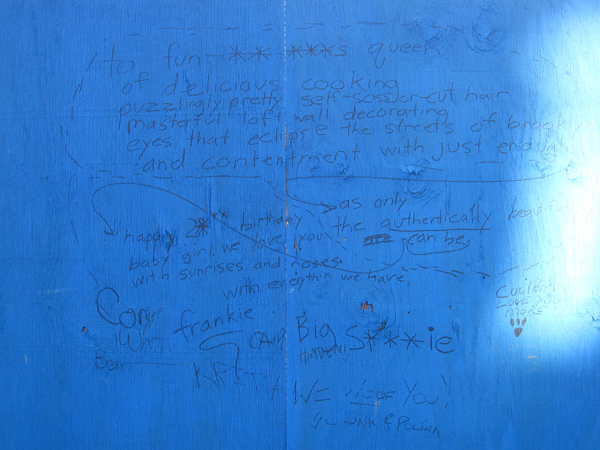 to fun- ** ***'s queen
of delicious cooking
puzzlingly pretty self-scissor-cut hair
masterful loft wall decorating
eyes that eclipse the streets of brookly
and contentment with just enough
as only
the authentically beautiful
can be,
happy 2**** birthday
baby girl. we love you
with sunrises and noses.
with everythin we have,
Cory
frankie
Big
S***ie
Ben
love you
more
WE WOOF YOU!